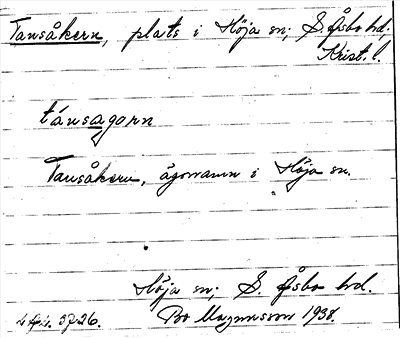 Tansåkern, plats i Höja sn; S. Åsbo hd.
Krist. l.
tánsagorn
Tansåkern, ägonamn i Höja sn.
Höja sn; S. Åsbo hd.
Bo Magnusson 1938.